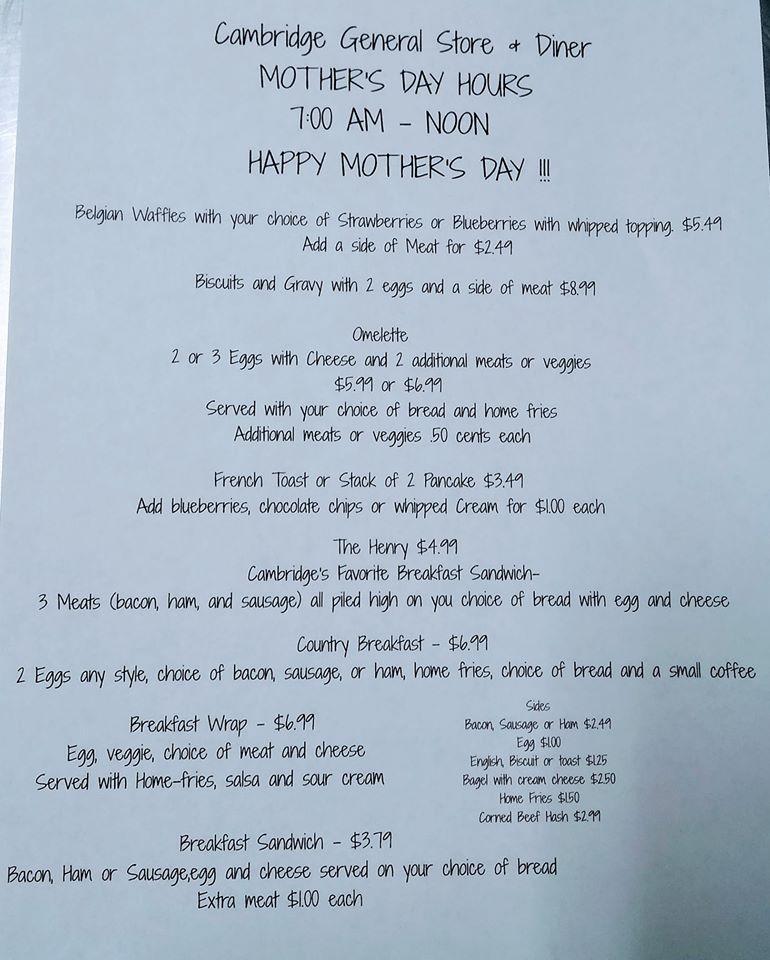 Cambridge General Store & Diner
MOTHER'S DAY HOURS
7:00 AM - NOON
HAPPY MOTHER'S DAY !!!
Belgian Waffles with your choice of Strawberries or Blueberries with whipped topping. $5.49
Add a side of Meat for $2.49
Biscuits and Gravy with 2 eggs and a side of meat $8.99
Omelette
2 or 3 Eggs with Cheese and 2 additional meats or veggies
$5.99 or $6.99
Served with your choice of bread and home fries
Additional meats or veggies .50 cents each
French Toast or Stack of 2 Pancake $3.49
Add blueberries, chocolate chips or whipped Cream for $1.00 each
The Henry $4.99
Cambridge's Favorite Breakfast Sandwich-
3 Meats (bacon, ham, and sausage) all piled high on you choice of bread with egg and cheese
Country Breakfast - $6.99
2 Eggs any style, choice of bacon, sausage, or ham, home fries, choice of bread and a small coffee
Breakfast Wrap - $6.99
Egg, veggie, choice of meat and cheese
Served with Home-fries, salsa and sour cream
Sides
Bacon, Sausage or Ham $2.49
Egg $1.00
English, Biscuit or toast $1.25
Bagel with cream cheese $2.50
Home Fries $1.50
Corned Beef Hash $2.99
Breakfast Sandwich - $3.79
Bacon, Ham or Sausage,egg and cheese served on your choice of bread
Extra meat $1.00 each